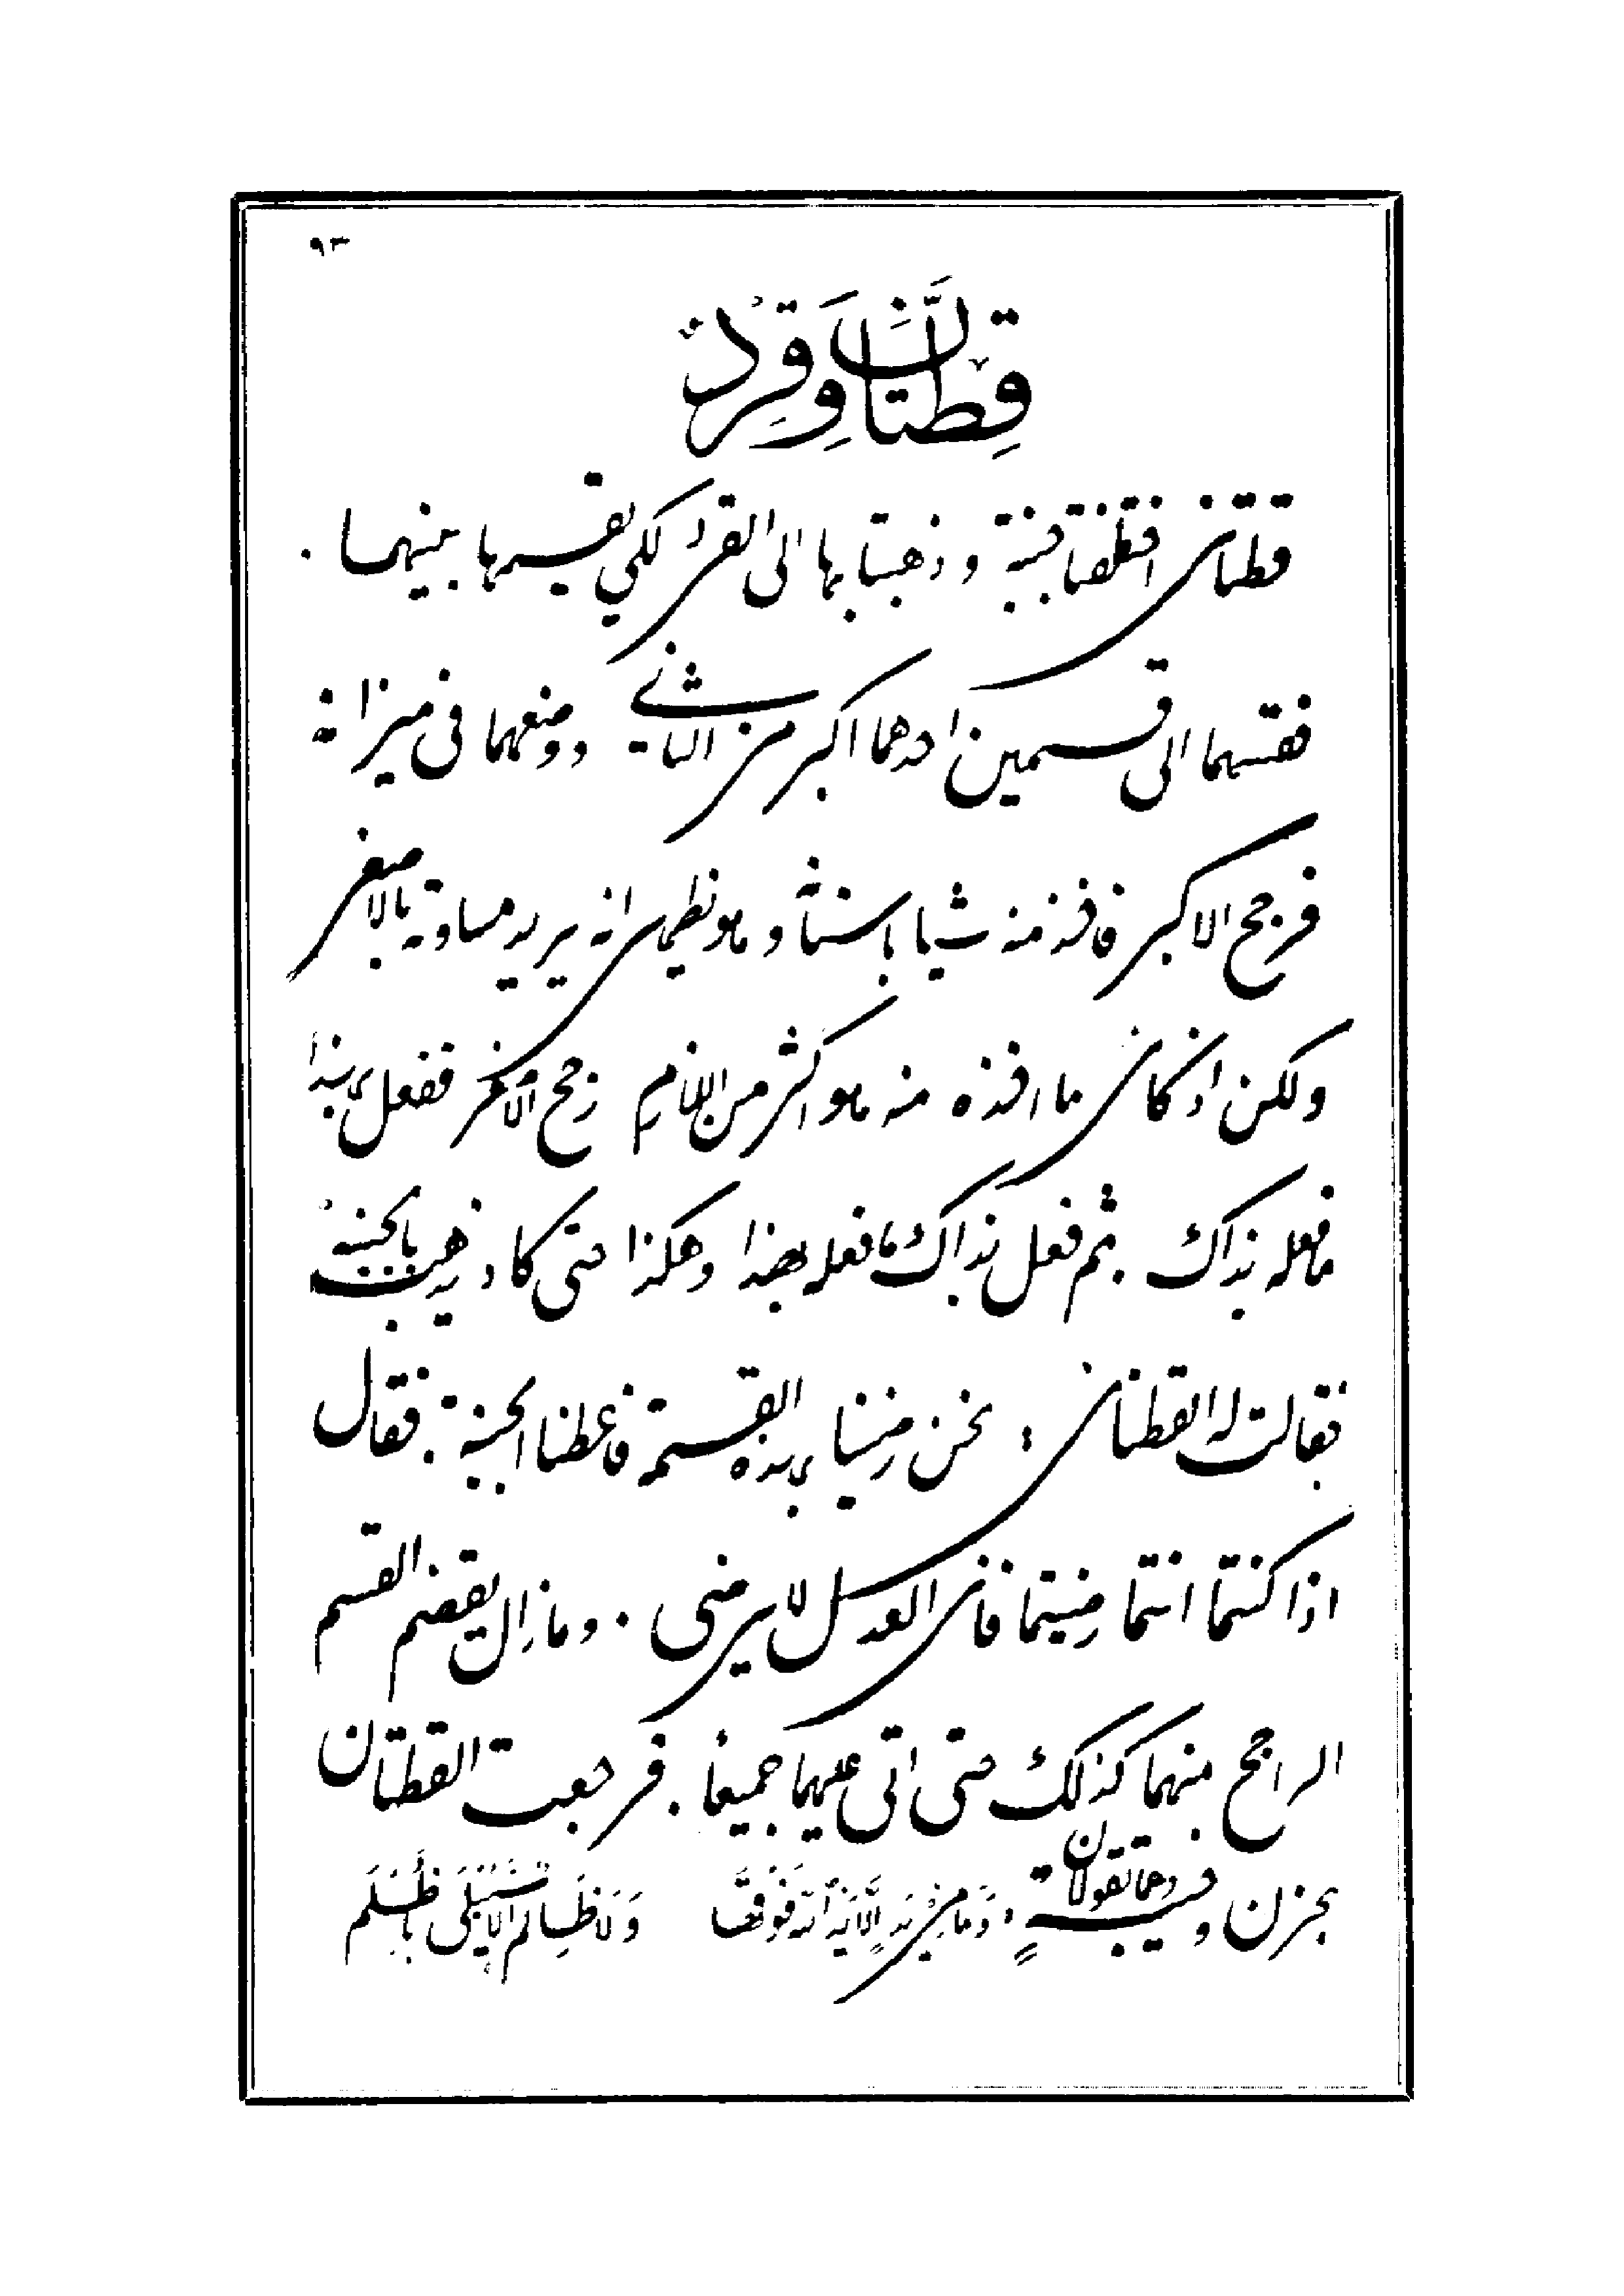 ٩٣
قِطَّتَانِ وَقِرْدٌ
قطتان اختطفتا جبنة وذهبتا بها الى القرد لكي يقسمها بينهما .
فقسمها الى قسمين احدهما اكبر من الثاني ووضعهما في ميزانه
فرجح الاكبر فاخذ منه شيئا باسنانه وهو يظهر انه يريد مساوته بالاصغر
ولكن اذ كان ما اخذه منه هو اكثر من اللازم رجح الاصغر ففعل بهذا
ما فعله بذاك . ثم فعل بذاك ما فعله بهذا وهكذا حتى كاد يذهب بالجبنة
فقالت له القطتان : نحن رضينا بهذه القسمة فاعطنا الجبنة . فقال
اذا كنتما انتما رضيتما فان العدل لا يرضى . وما زال يقضم القسم
الراجح منهما كذلك حتى اتى عليهما جميعا . فرجعت القطتان
بحزن وخيبة وهما تقولان : وَمَا مِنْ يَدٍ إِلَّا يَدُ اللهِ فَوْقَهَا وَلَا ظَالِمٌ إِلَّا سَيُبْلَى بِأَظْلَمِ